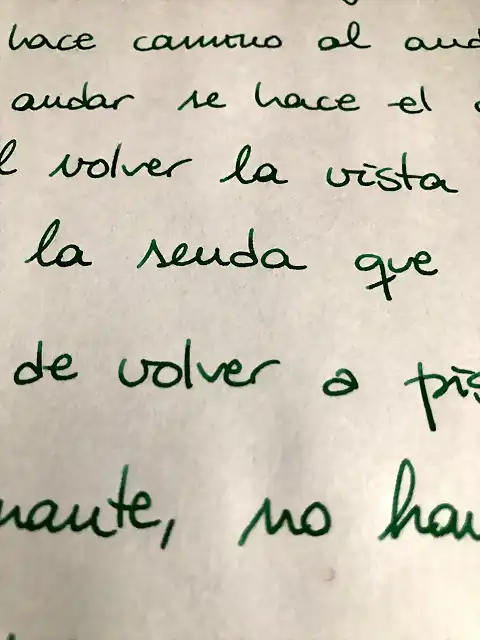 hace camino al and
andar se hace el
l volver la vista
la senda que
de volver a pis
nante, no hay